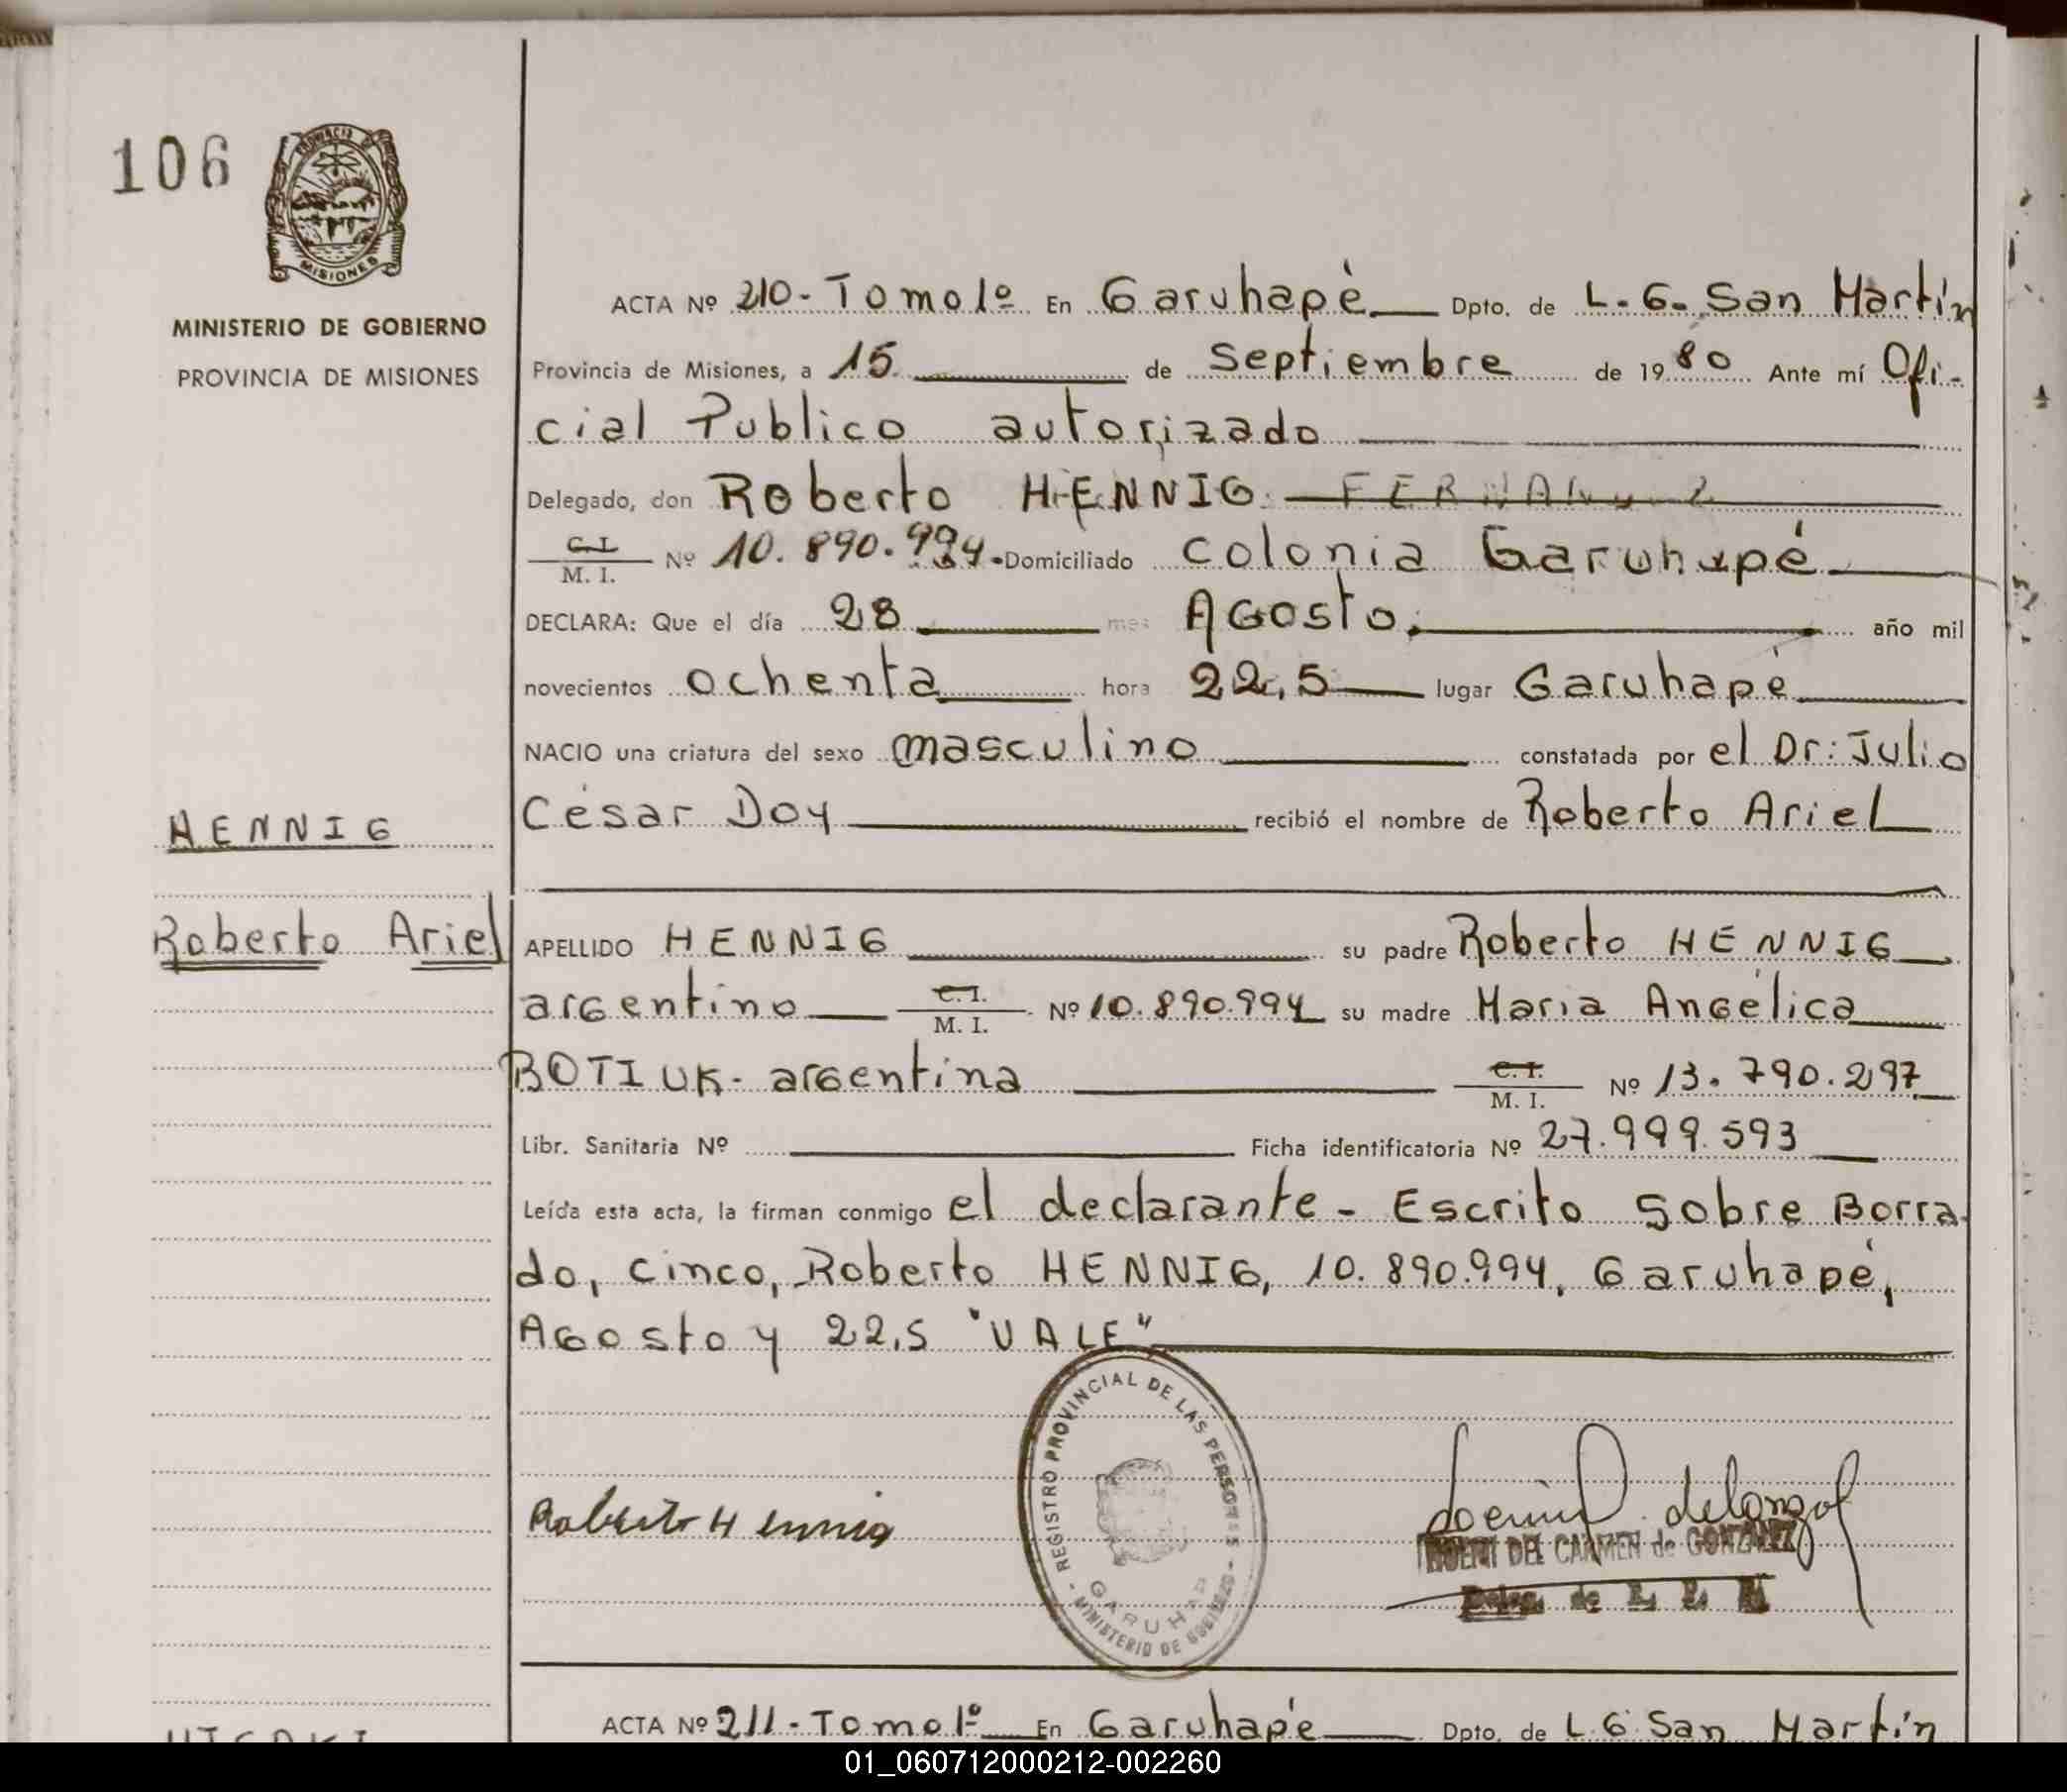 106
PROVINCIA DE
MISIONES
MINISTERIO DE GOBIERNO
PROVINCIA DE MISIONES
ACTA Nº 210-Tomo 1º En Garuhapè Dpto. de L.G. San Martín
Provincia de Misiones, a 15 de Septiembre de 1980 Ante mí Ofi-
cial Publico autorizado
Delegado, don Roberto HENNIG
C.I. M. I. Nº 10.890.994.- Domiciliado Colonia Garuhapé
DECLARA: Que el día 28 mes Agosto, año mil
novecientos ochenta hora 22,5 lugar Garuhapé
NACIO una criatura del sexo masculino constatada por el Dr: Julio
César Doy recibió el nombre de Roberto Ariel
HENNIG
Roberto Ariel
APELLIDO HENNIG su padre Roberto HENNIG
argentino C.I. M. I. Nº 10.890.994 su madre Maria Angélica
BOTIUK- argentina C.I. M. I. Nº 13.790.297
Libr. Sanitaria Nº Ficha identificatoria Nº 27.999.593
Leída esta acta, la firman conmigo el declarante - Escrito Sobre Borra
do, cinco, Roberto HENNIG, 10.890.994, Garuhapé,
Agosto y 22,5 "VALE"
REGISTRO PROVINCIAL DE LAS PERSONAS - MINISTERIO DE GOBIERNO -
Roberto Hennig
DEL CARMEN de GONZALEZ
ACTA Nº 211-Tomo 1º En Garuhapé Dpto. de L.G. San Martín
01_060712000212-002260